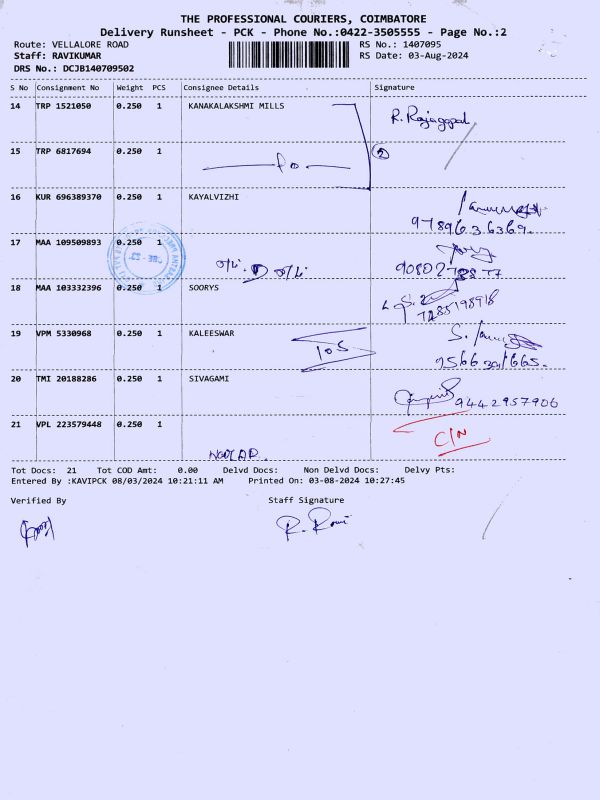 THE PROFESSIONAL COURIERS, COIMBATORE
Delivery Runsheet - PCK - Phone No.:0422-3505555 - Page No.:2
Route: VELLALORE ROAD
RS No.: 1407095
Staff: RAVIKUMAR
RS Date: 03-Aug-2024
DRS No.: DCJB140709502
S No Consignment No Weight PCS Consignee Details Signature
14 TRP 1521050 0.250 1 KANAKALAKSHMI MILLS
R. Rajaggpal
15 TRP 6817694 0.250 1
2
16 KUR 696389370 0.250 1 KAYALVIZHI
9789636369.
17 MAA 109509893 0.250 1
18 MAA 103332396 0.250 1 SOORYS
19 VPM 5330968 0.250 1 KALEESWAR
20 TMI 20188286 0.250 1 SIVAGAMI
9442957906
21 VPL 223579448 0.250 1
C/N
Tot Docs: 21 Tot COD Amt: 0.00 Delvd Docs: Non Delvd Docs: Delvy Pts:
Entered By :KAVIPCK 08/03/2024 10:21:11 AM Printed On: 03-08-2024 10:27:45
Verified By Staff Signature
R. Ravi